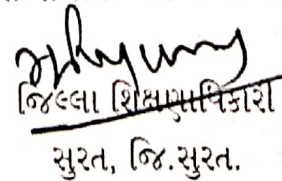 જિલ્લા શિક્ષણાધિકારી
સુરત, જિ.સુરત.